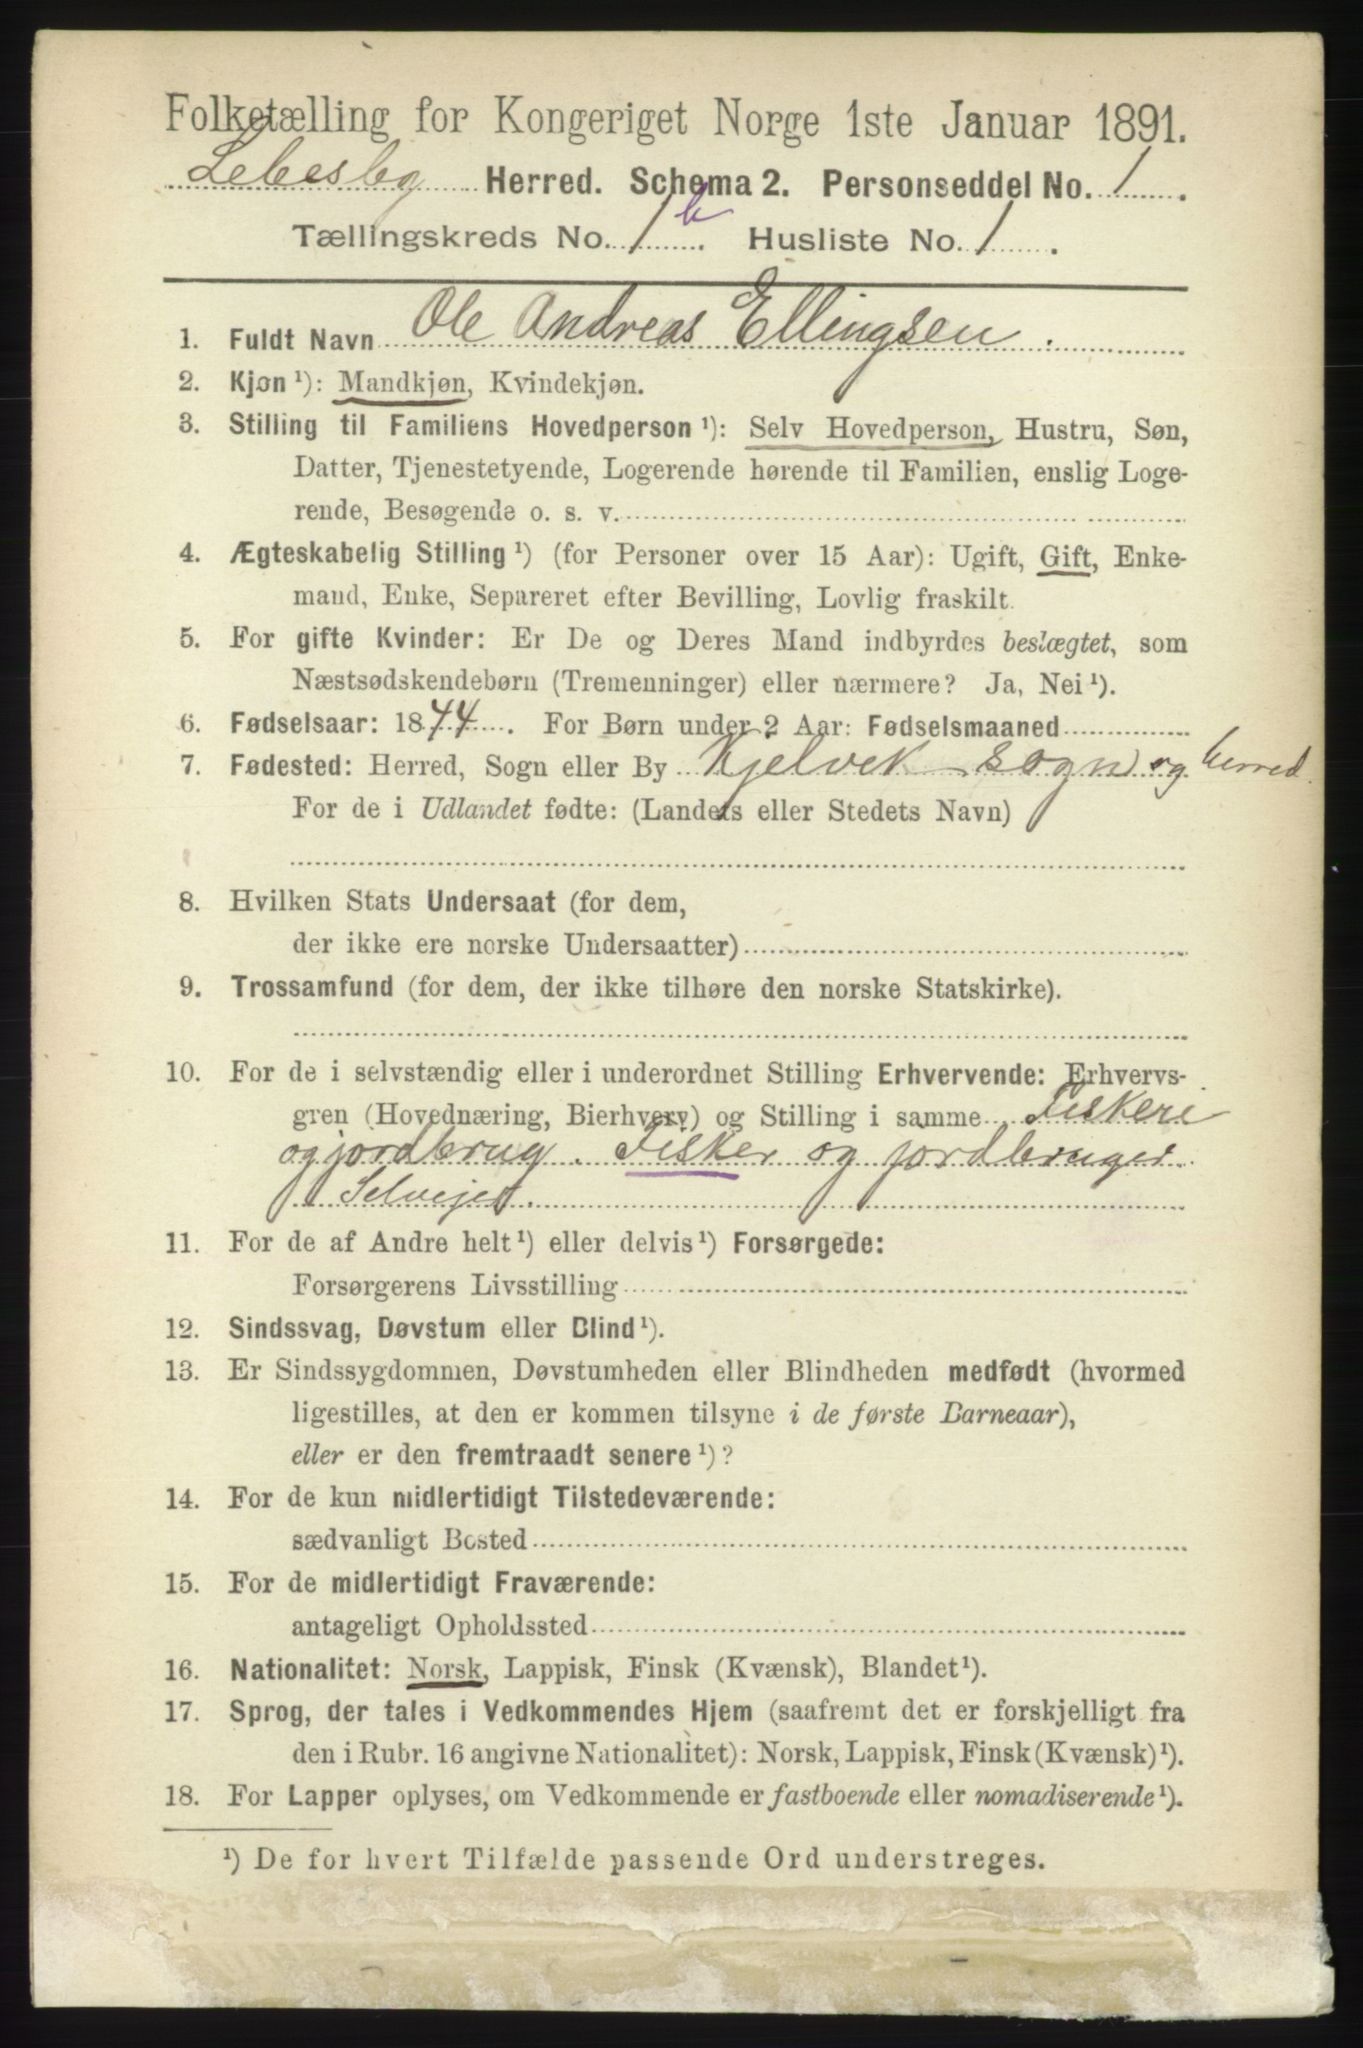 Folketælling for Kongeriget Norge 1ste Januar 1891.
Lebesby Herred. Schema 2. Personseddel No. 1.
Tællingskreds No. 1 b. Husliste No. 1.
1. Fuldt Navn Ole Andreas Ellingsen.
2. Kjøn ¹): Mandkjøn, Kvindekjøn.
3. Stilling til Familiens Hovedperson ¹): Selv Hovedperson, Hustru, Søn,
Datter, Tjenestetyende, Logerende hørende til Familien, enslig Loge-
rende, Besøgende o. s. v.
4. Ægteskabelig Stilling ¹) (for Personer over 15 Aar): Ugift, Gift, Enke-
mand, Enke, Separeret efter Bevilling, Lovlig fraskilt.
5. For gifte Kvinder: Er De og Deres Mand indbyrdes beslægtet, som
Næstsødskendebørn (Tremenninger) eller nærmere? Ja, Nei ¹).
6. Fødselsaar: 1844. For Børn under 2 Aar: Fødselsmaaned
7. Fødested: Herred, Sogn eller By Kjelvek sogn og herred.
For de i Udlandet fødte: (Landets eller Stedets Navn)
8. Hvilken Stats Undersaat (for dem,
der ikke ere norske Undersaatter)
9. Trossamfund (for dem, der ikke tilhøre den norske Statskirke).
10. For de i selvstændig eller i underordnet Stilling Erhvervende: Erhvervs-
gren (Hovednæring, Bierhverv) og Stilling i samme Fiskeri
og jordbrug. Fisker og jordbruger
Selvejer.
11. For de af Andre helt ¹) eller delvis ¹) Forsørgede:
Forsørgerens Livsstilling
12. Sindssvag, Døvstum eller Blind ¹).
13. Er Sindssygdommen, Døvstumheden eller Blindheden medfødt (hvormed
ligestilles, at den er kommen tilsyne i de første Barneaar),
eller er den fremtraadt senere ¹)?
14. For de kun midlertidigt Tilstedeværende:
sædvanligt Bosted
15. For de midlertidigt Fraværende:
antageligt Opholdssted
16. Nationalitet: Norsk, Lappisk, Finsk (Kvænsk), Blandet ¹).
17. Sprog, der tales i Vedkommendes Hjem (saafremt det er forskjelligt fra
den i Rubr. 16 angivne Nationalitet): Norsk, Lappisk, Finsk (Kvænsk) ¹).
18. For Lapper oplyses, om Vedkommende er fastboende eller nomadiserende ¹).
¹) De for hvert Tilfælde passende Ord understreges.